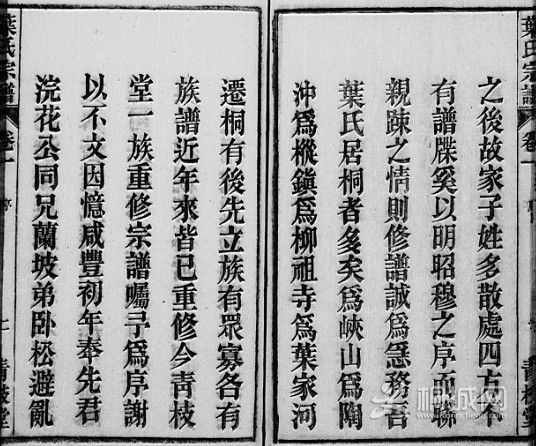 葉氏宗譜
卷一
之後故家子姓多散處四方非
有譜牒奚以明昭穆之序而聯
親踈之情則修譜誠爲急務吾
葉氏居桐者多矣爲峽山爲陶
沖爲樅鎭爲柳祖寺爲葉家河
遷桐有後先立族有眾寡各有
族譜近年來皆已重修今靑枝
堂一族重修宗譜囑予爲序謝
以不文因憶咸豐初年奉先君
浣花公同兄蘭坡弟卧松避亂
葉氏宗譜
卷一
序
靑枝堂
桐城网